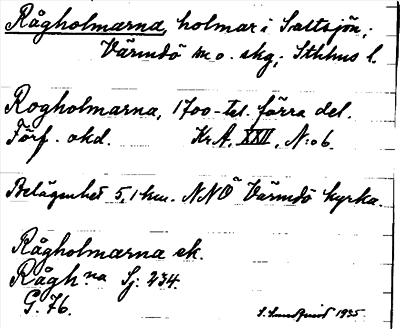 Rågholmarna, holmar i Saltsjön,
Värmdö m o. skg; Sthlms l.
Rogholmarna, 1700-tal. förra del.
Förf. okd. Kr.A, XXII, N:o 6.
Belägenhet 5,1 km. NNÖ Värmdö kyrka.
Rågholmarna ek.
Rågh:na Sj. 234.
G. 76.
S. Sundquist 1935